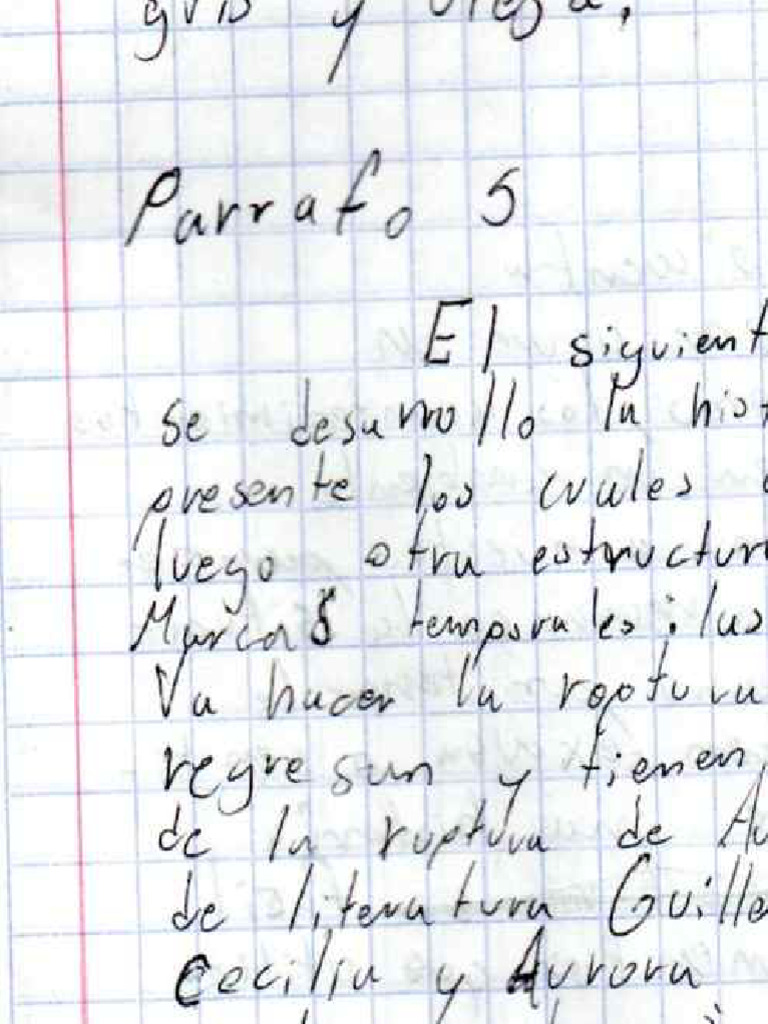 gris y vieja.
Parrafo 5
El siguient
se desarrollo la hist
presente los cuales
luego otra estructur
Marcas temporales: las
Va hacer la roptura
regresan y tienen
de la ruptura de Au
de literatura Guille
Cecilia y Aurora